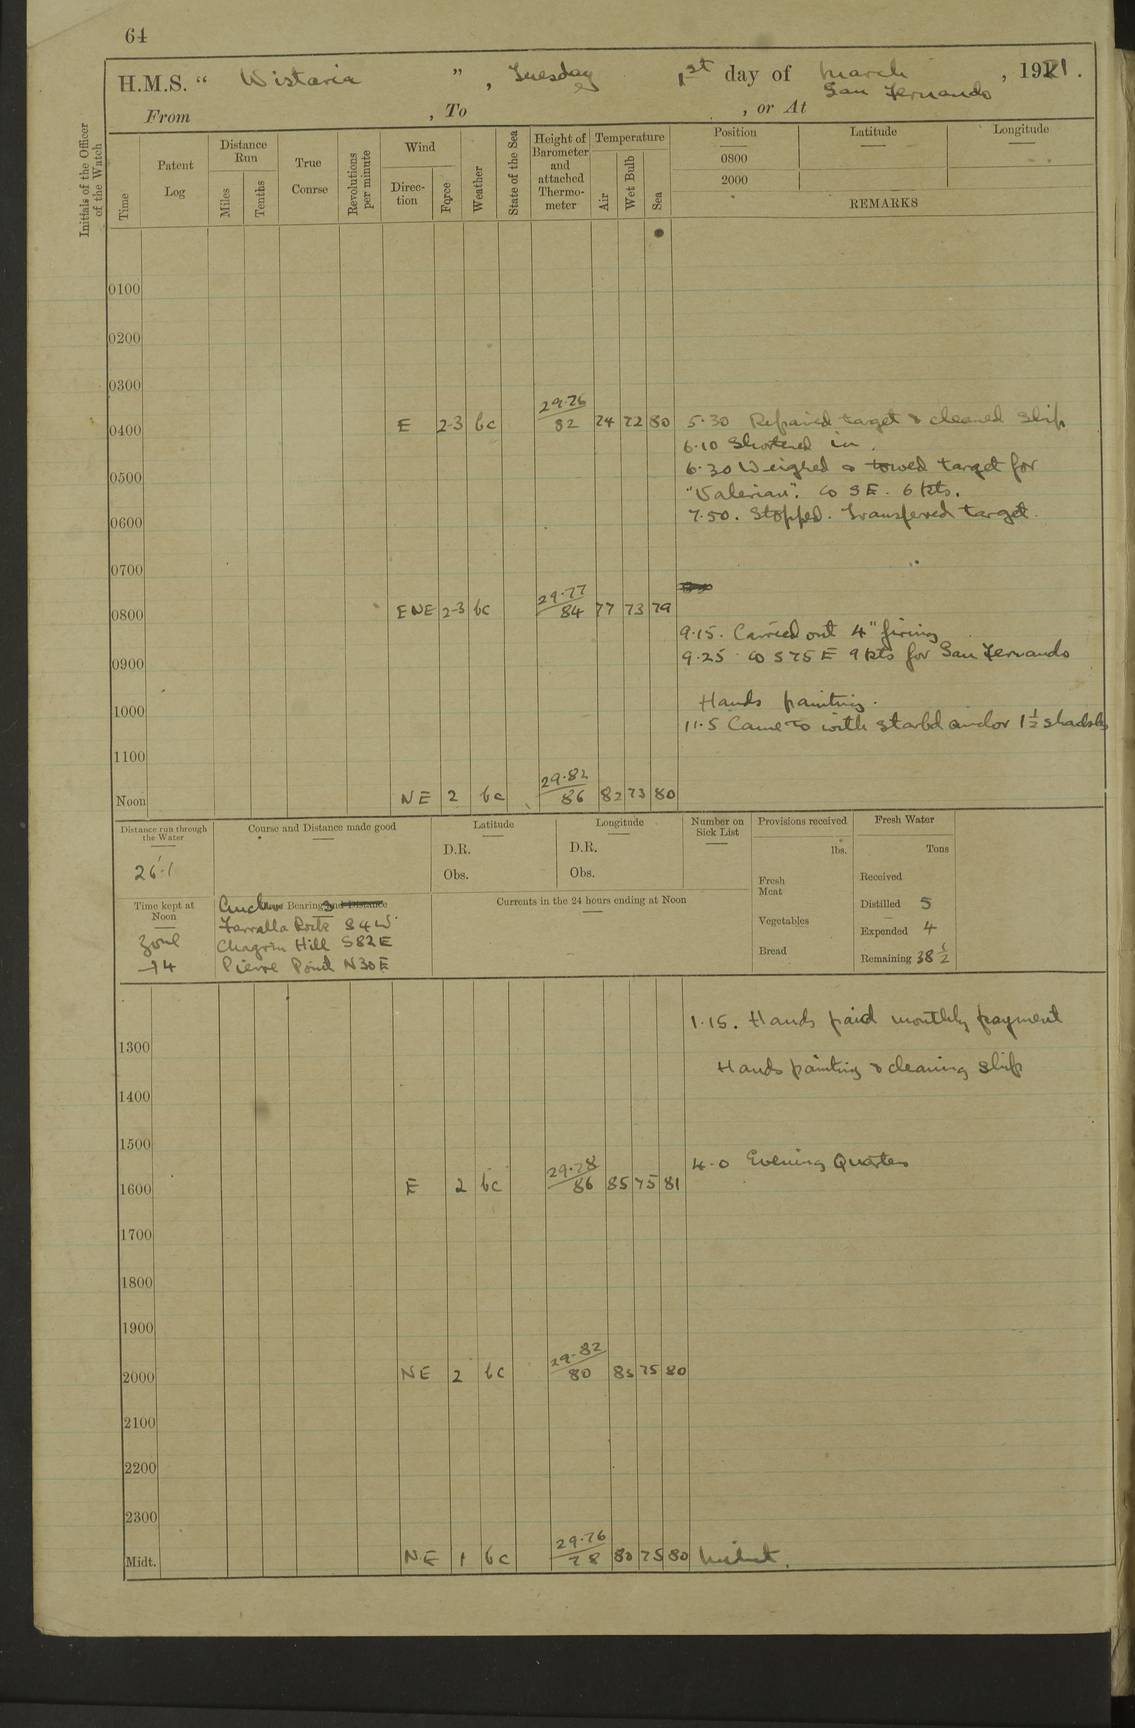 64
H.M.S. " Wistaria ", Tuesday 1st day of March, 1921.
San Fernando
From , To , or At
Initials of the Officer of the Watch
Time
Patent Log
Distance Run
Miles
Tenths
True Course
Revolutions per minute
Wind
Direc-tion
Force
Weather
State of the Sea
Height of Barometer and attached Thermo-meter
Temperature
Air
Wet Bulb
Sea
Position
Latitude
Longitude
0800
2000
REMARKS
0100
0200
0300
0400 E 2-3 bc 29.76/82 74 72 80 5.30 Repaired target & cleaned Ship
6.10 Shortened in
6.30 Weighed & towed target for
0500
"Valerian". Co SE. 6 kts.
7.50. Stopped. Transferred target.
0600
0700
0800 ENE 2-3 bc 29.77/84 77 73 79
9.15. Carried out 4" firing
9.25 Co S75E 9 kts for San Fernando
0900
Hands painting.
1000
11.5 Came to with starbd anchor 1½ shackles
1100
Noon NE 2 bc 29.82/86 82 73 80
Distance run through the Water
26.1
Course and Distance made good
Latitude
D.R.
Obs.
Longitude
D.R.
Obs.
Number on Sick List
Provisions received
lbs.
Fresh Meat
Vegetables
Bread
Fresh Water
Tons
Received
Distilled 5
Expended 4
Remaining 38½
Time kept at Noon
Zone
+4
Anchor Bearings and Distance
Farralla Rock S4W
Chagrin Hill S82E
Pierre Point N30E
Currents in the 24 hours ending at Noon
1.15. Hands paid monthly payment
1300
Hands painting & cleaning ship
1400
1500
4.0 Evening Quarters
1600 E 2 bc 29.78/86 85 75 81
1700
1800
1900
2000 NE 2 bc 29.82/80 83 75 80
2100
2200
2300
Midt. NE 1 bc 29.76/78 80 75 80